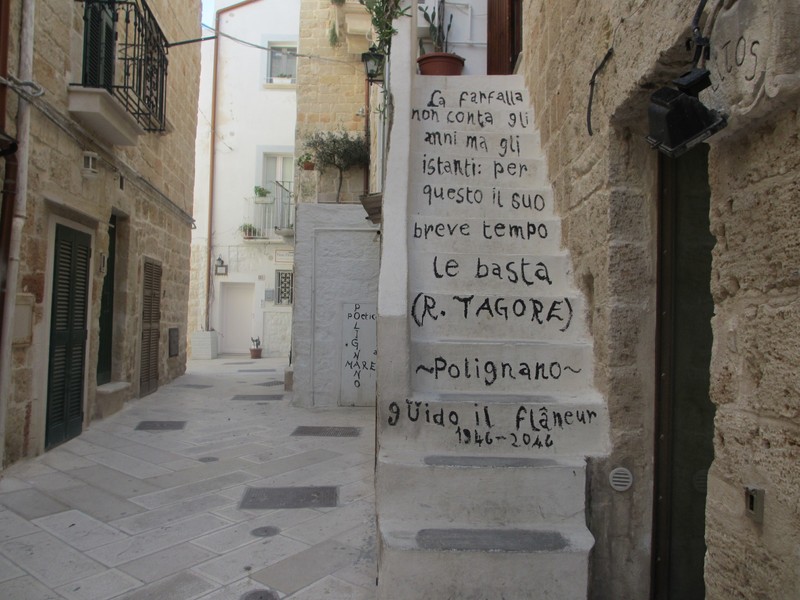 La farfalla
non conta gli
anni ma gli
istanti: per
questo il suo
breve tempo
le basta
(R. TAGORE)
~Polignano~
güido il flâneur
1946-2046
POLIGNANO
POETIC
a
MARE
TOS